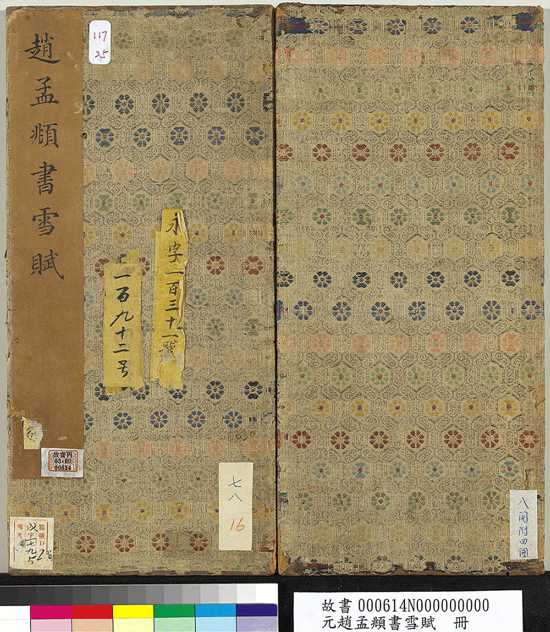 趙孟頫書雪賦
117
25
永字一百三十一號
一百九十二号
七八
16
八開附四開
故書 000614N000000000
元趙孟頫書雪賦 冊